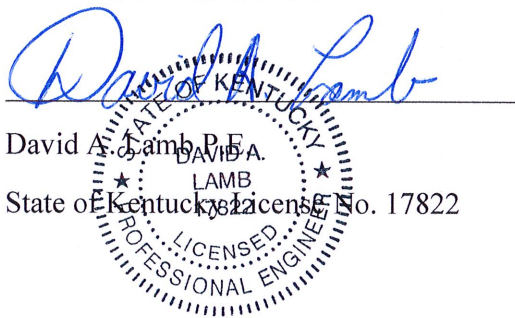 David A Lamb
David A. Lamb P.E.
State of Kentucky License No. 17822
STATE OF KENTUCKY
DAVID A.
LAMB
17822
LICENSED
PROFESSIONAL ENGINEER